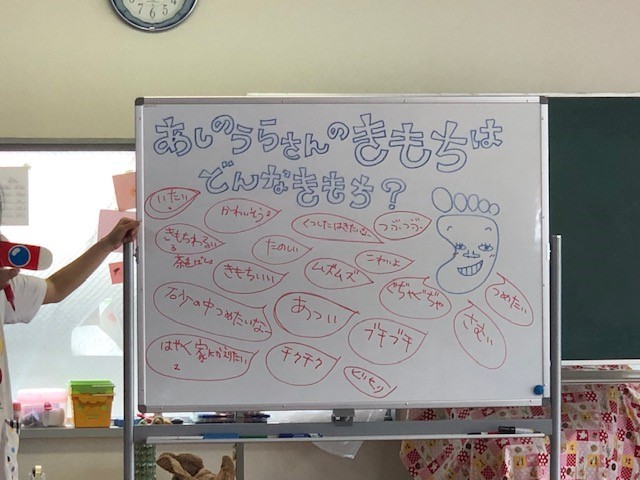 あしのうらさんのきもちは
どんなきもち?
いたい
かわいそう
くつしたはきたいな
つぶつぶ
きもちわるい
3
たのしい
こわいよ
きもちいい
ムズムズ
ぐぢゃぐぢゃ
つめたい
石砂の中つめたいな
あっつい
ブチブチ
さむい
はやく家にかえりたい
2
チクチク